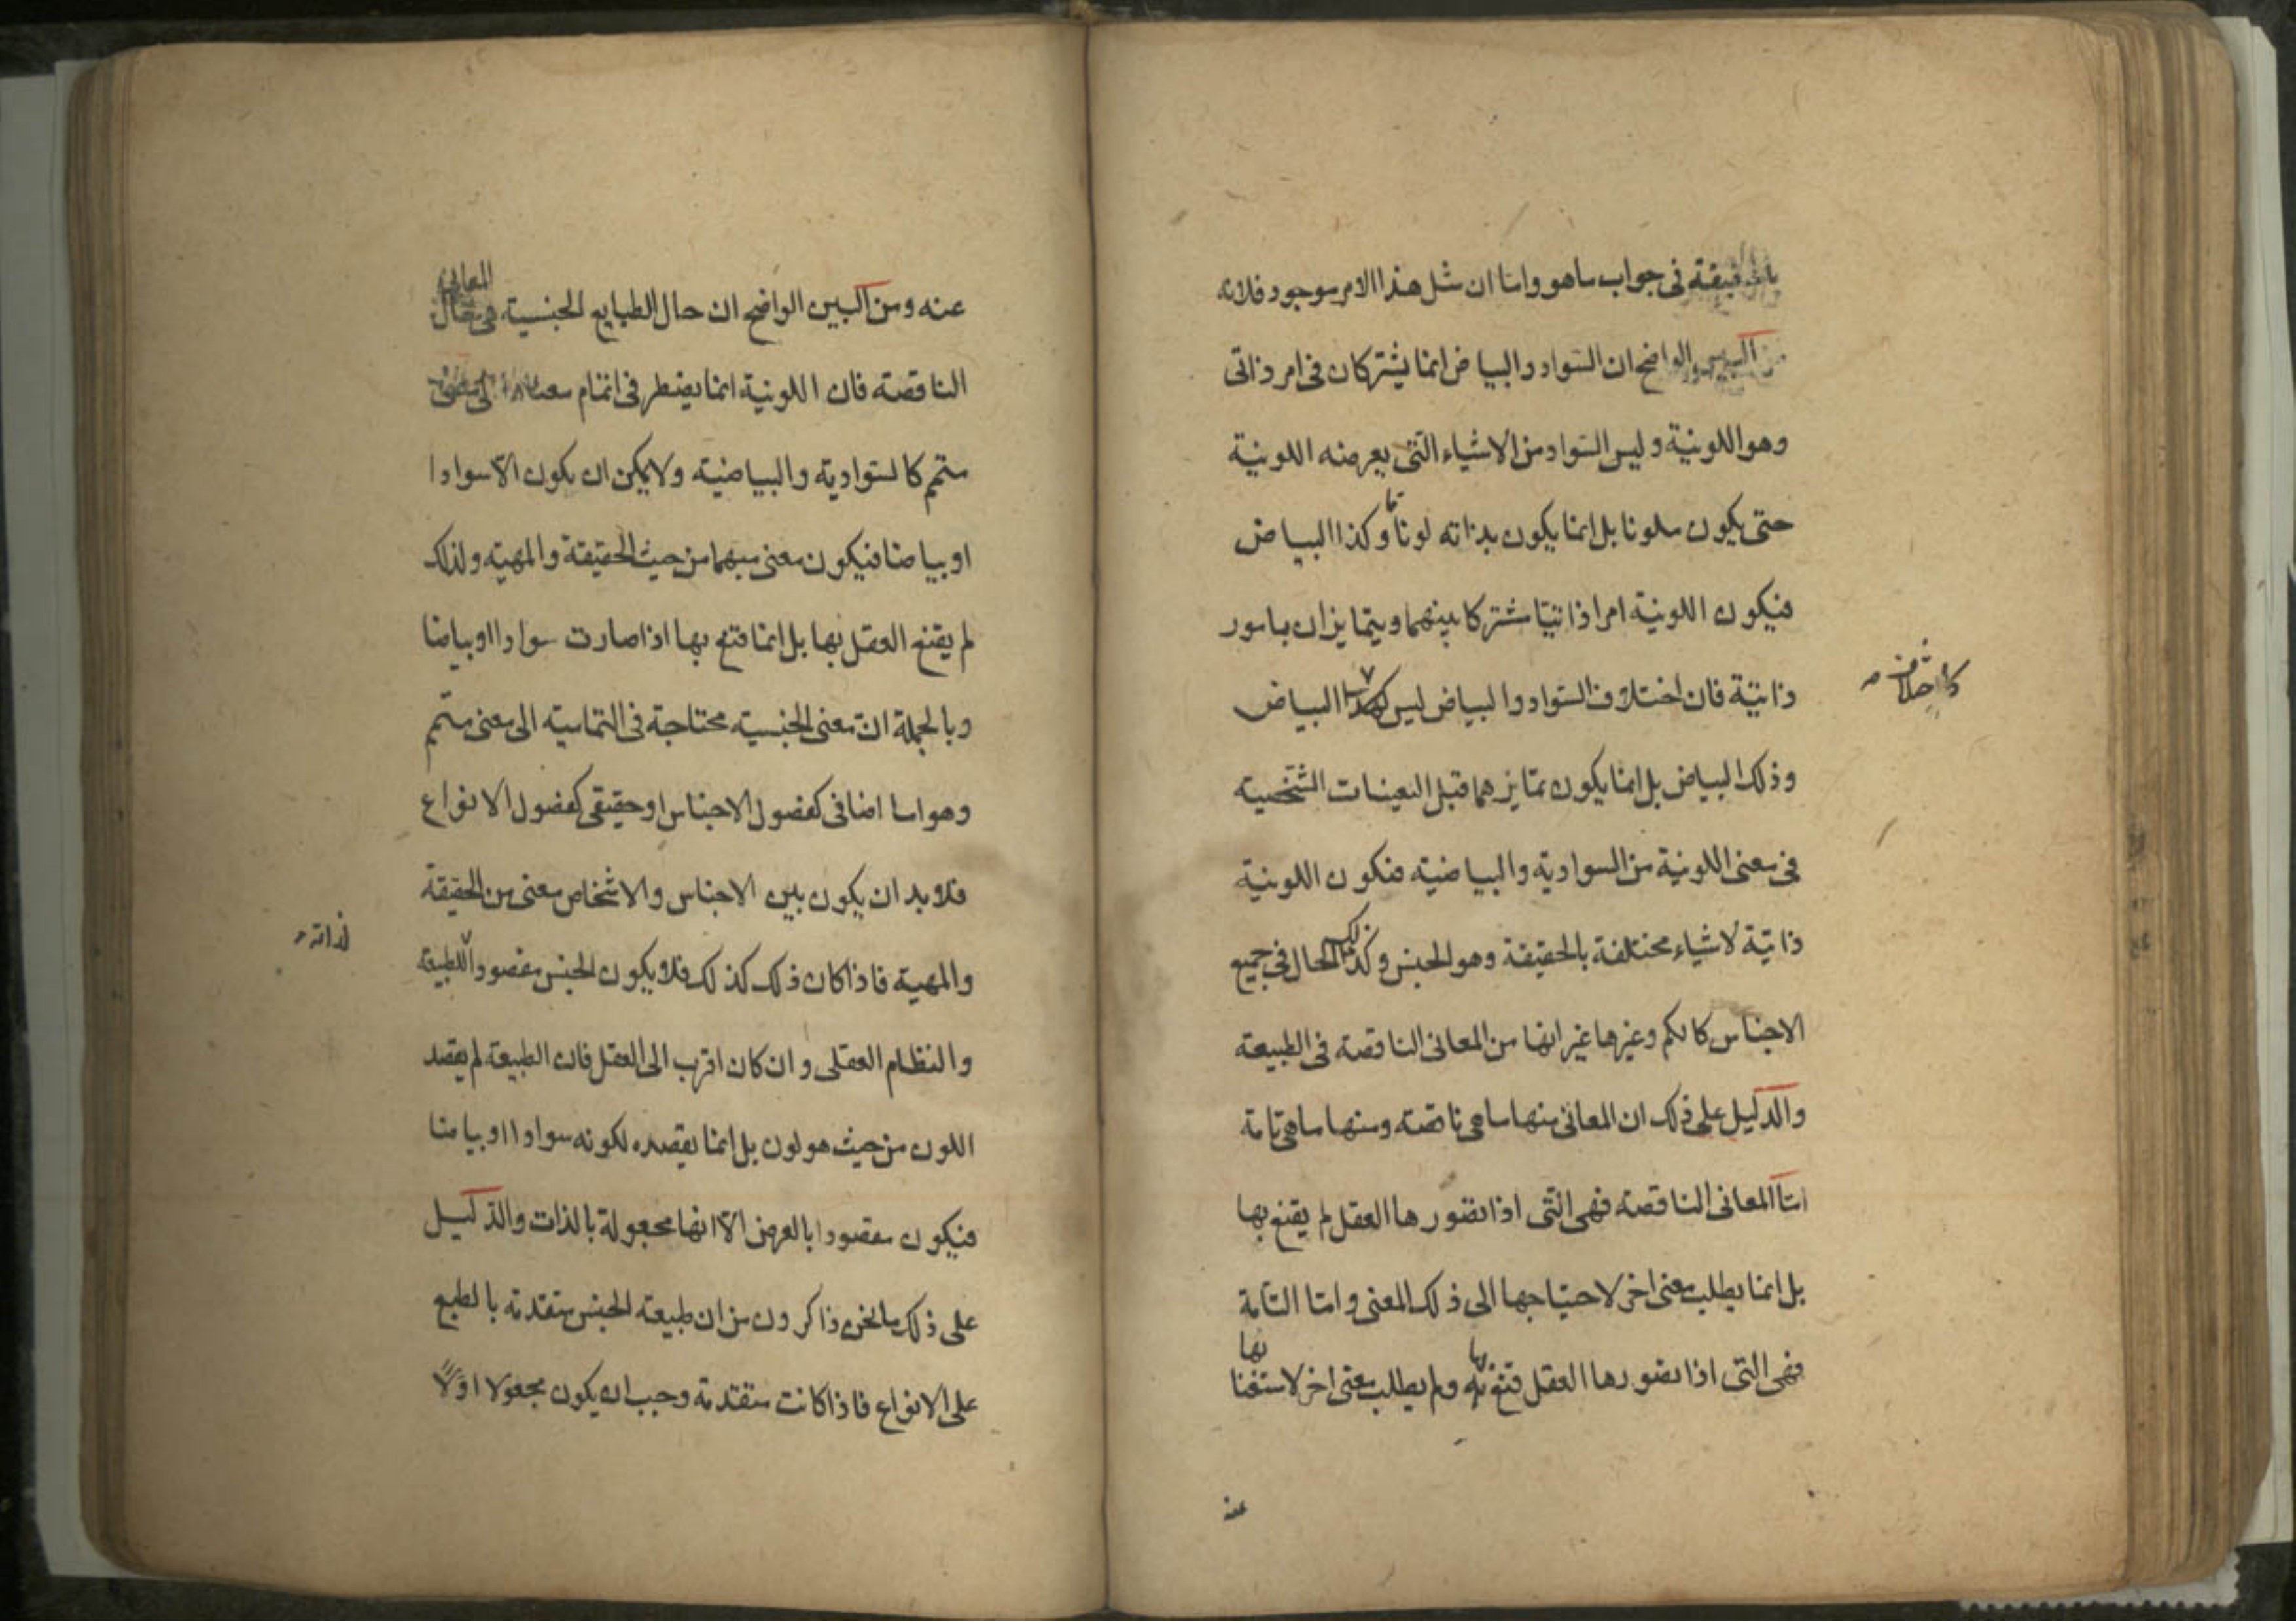 بالحقيقة فى جواب ماهو واما ان مثل هذا الامر موجود فلانه
من البين الواضح ان السواد والبياض انما يشتركان فى امر ذاتى
وهو اللونية وليس السواد من الاشياء التى يعرضه اللونية
حتى يكون ملونا بل انما يكون بذاته لونا ما وكذا البياض
فيكون اللونية امرا ذاتيا مشتركا بينهما ويتمايزان بامور
ذاتية فان اختلاف السواد والبياض ليس هذا البياض
كاختلاف
وذلك البياض بل انما يكون تمايزهما قبل التعينات الشخصية
فى معنى اللونية من السوادية والبياضية فتكون اللونية
ذاتية لاشياء مختلفة بالحقيقة وهو الجنس وكذلك الحال فى جميع
الاجناس كالكم وغيرها غير انها من المعانى الناقصة فى الطبيعة
والدليل على ذلك ان المعانى منها ما هى ناقصة ومنها ما هى تامة
اما المعانى الناقصة فهى التى اذا تصورها العقل لم يقنع بها
بل انما يطلب معنى اخر لاحتياجها الى ذلك المعنى واما التامة
فهى التى اذا تصورها العقل قنع بها ولم يطلب معنى اخر لاستغنائها
عنه
عنه ومن البين الواضح ان حال الطبايع الجنسية هى حال المعانى
الناقصة فان اللونية انما يضطر فى اتمام معناها الى معنى
متمم كالسوادية والبياضية ولا يمكن ان يكون الا سوادا
او بياضا فيكون معنى مبهما من حيث الحقيقة والمهية ولذلك
لم يقنع العقل بها بل انما قنع بها اذا صارت سوادا او بياضا
وبالجملة ان معنى الجنسية محتاجة فى التمامية الى معنى متمم
وهو اما اضافى كفصول الاجناس او حقيقى كفصول الانواع
فلا بد ان يكون بين الاجناس والاشخاص معنى من الحقيقة
والمهية فاذا كان ذلك كذلك فلا يكون الجنس مقصودا للطبيعة
لذاته
والنظام العقلى وان كان اقرب الى العقل فان الطبيعة لم يقصد
اللون من حيث هو لون بل انما يقصده لكونه سوادا او بياضا
فيكون مقصودا بالعرض الا انها مجعولة بالذات والدليل
على ذلك ما نحن ذاكرون من ان طبيعة الجنس متقدمة بالطبع
على الانواع فاذا كانت متقدمة وجب ان يكون مجعولا اولا